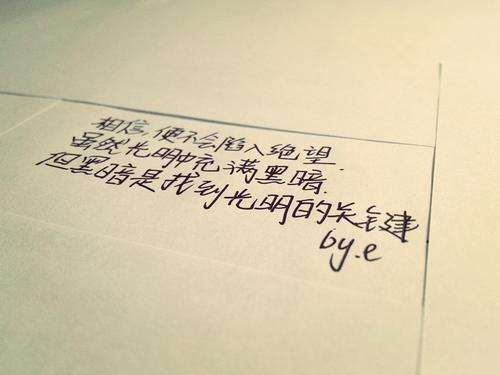 相信,便不会陷入绝望.
虽然光明中充满黑暗.
但黑暗是找到光明的关键
by.e